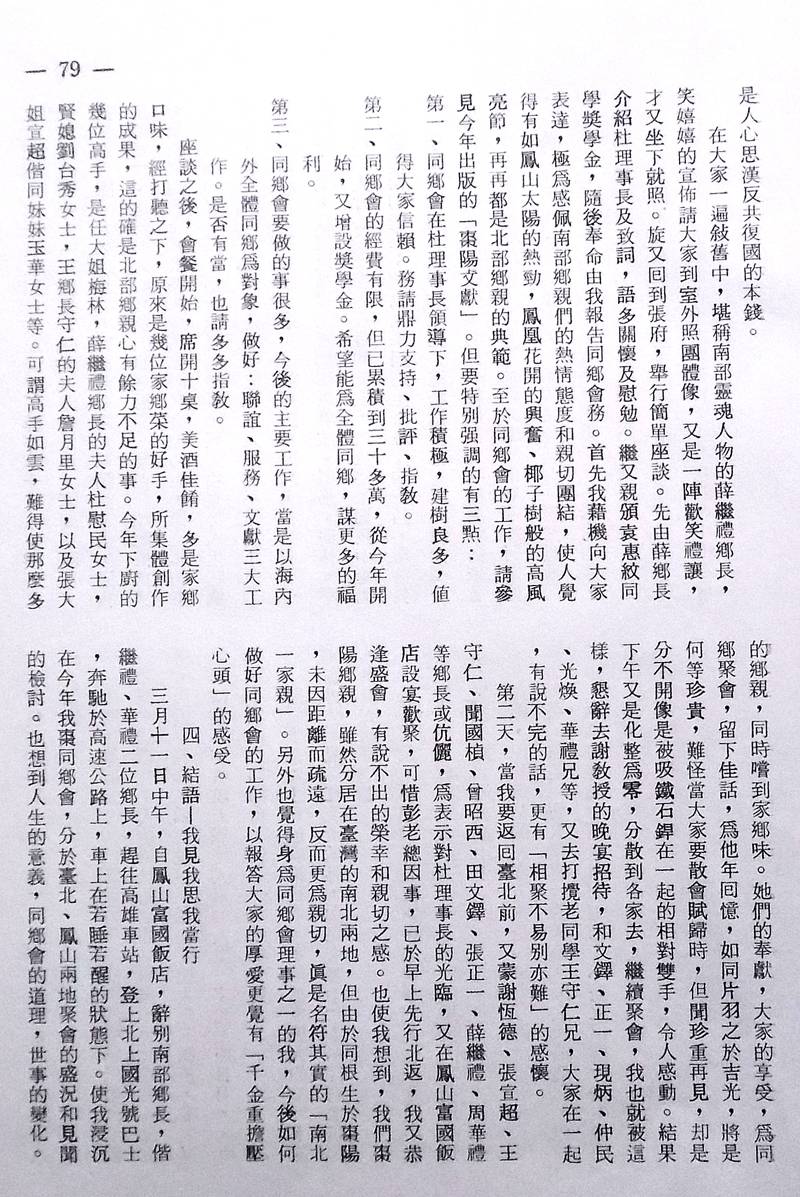 — 79 —
是人心思漢反共復國的本錢。
在大家一遍敍舊中，堪稱南部靈魂人物的薛繼禮鄉長，
笑嬉嬉的宣佈請大家到室外照團體像，又是一陣歡笑禮讓，
才又坐下就照。旋又回到張府，舉行簡單座談。先由薛鄉長
介紹杜理事長及致詞，語多關懷及慰勉。繼又親頒袁惠紋同
學獎學金，隨後奉命由我報告同鄉會務。首先我藉機向大家
表達，極爲感佩南部鄉親們的熱情態度和親切團結，使人覺
得有如鳳山太陽的熱勁，鳳凰花開的興奮、椰子樹般的高風
亮節，再再都是北部鄉親的典範。至於同鄉會的工作，請參
見今年出版的「棗陽文獻」。但要特別强調的有三點：
第一、同鄉會在杜理事長領導下，工作積極，建樹良多，値
得大家信賴。務請鼎力支持、批評、指敎。
第二、同鄉會的經費有限，但已累積到三十多萬，從今年開
始，又增設獎學金。希望能爲全體同鄉，謀更多的福
利。
第三、同鄉會要做的事很多，今後的主要工作，當是以海內
外全體同鄉爲對象，做好：聯誼、服務、文獻三大工
作。是否有當，也請多多指敎。
座談之後，會餐開始，席開十桌，美酒佳餚，多是家鄉
口味，經打聽之下，原來是幾位家鄉菜的好手，所集體創作
的成果，這的確是北部鄉親心有餘力不足的事。今年下廚的
幾位高手，是任大姐梅林，薛繼禮鄉長的夫人杜慰民女士，
賢媳劉台秀女士，王鄉長守仁的夫人詹月里女士，以及張大
姐宣超偕同妹妹玉華女士等。可謂高手如雲，難得使那麼多
的鄉親，同時嚐到家鄉味。她們的奉獻，大家的享受，爲同
鄉聚會，留下佳話，爲他年回憶，如同片羽之於吉光，將是
何等珍貴，難怪當大家要散會賦歸時，但聞珍重再見，却是
分不開像是被吸鐵石銲在一起的相對雙手，令人感動。結果
下午又是化整爲零，分散到各家去，繼續聚會，我也就被這
樣，懇辭去謝敎授的晚宴招待，和文鐸、正一、現炳、仲民
、光煥、華禮兄等，又去打攪老同學王守仁兄，大家在一起
，有說不完的話，更有「相聚不易別亦難」的感懷。
第二天，當我要返回臺北前，又蒙謝恆德、張宣超、王
守仁、聞國楨、曾昭西、田文鐸、張正一、薛繼禮、周華禮
等鄉長或伉儷，爲表示對杜理事長的光臨，又在鳳山富國飯
店設宴歡聚，可惜彭老總因事，已於早上先行北返，我又恭
逢盛會，有說不出的榮幸和親切之感。也使我想到，我們棗
陽鄉親，雖然分居在臺灣的南北兩地，但由於同根生於棗陽
，未因距離而疏遠，反而更爲親切，眞是名符其實的「南北
一家親」。另外也覺得身爲同鄉會理事之一的我，今後如何
做好同鄉會的工作，以報答大家的厚愛更覺有「千金重擔壓
心頭」的感受。
四、結語—我見我思我當行
三月十一日中午，自鳳山富國飯店，辭別南部鄉長，偕
繼禮、華禮二位鄉長，趕往高雄車站，登上北上國光號巴士
，奔馳於高速公路上，車上在若睡若醒的狀態下。使我浸沉
在今年我棗同鄉會，分於臺北、鳳山兩地聚會的盛況和見聞
的檢討。也想到人生的意義，同鄉會的道理，世事的變化。